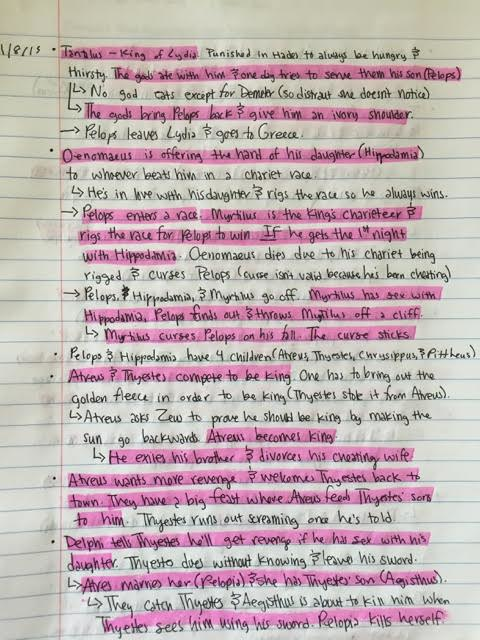 1/8/15 • Tantilus - King of Lydia. Punished in Hades to always be hungry &
thirsty. The gods ate with him & one day tries to serve them his son (Pelops)
↳ No god eats except for Demeter (so distraut she doesn't notice)
↳ The gods bring Pelops back & give him an ivory shoulder.
→ Pelops leaves Lydia & goes to Greece.
• Oenomaeus is offering the hand of his daughter (Hippodamia)
to whoever beats him in a chariet race.
↳ He's in love with his daughter & rigs the race so he always wins.
→ Pelops enters a race. Myrtilus is the King's charieteer &
rigs the race for Pelops to win If he gets the 1st night
with Hippodamia. Oenomaeus dies due to his chariet being
rigged & curses Pelops (curse isn't valid because he's been cheating)
→ Pelops, Hippodamia, & Myrtilus go off. Myrtilus has sex with
Hippodamia, Pelops finds out & throws Myrtilus off a cliff.
↳ Myrtilus curses Pelops on his fall. The curse sticks.
• Pelops & Hippodamia have 4 children (Atreus, Thyestes, Chrysippus, & Pittheus)
• Atreus & Thyestes compete to be king. One has to bring out the
golden fleece in order to be king (Thyestes stole it from Atreus).
↳ Atreus asks Zeus to prove he should be king by making the
sun go backwards. Atreus becomes king.
↳ He exiles his brother & divorces his cheating wife.
• Atreus wants more revenge & welcomes Thyestes back to
town. They have a big feast where Atreus feeds Thyestes' sons
to him. Thyestes runs out screaming once he's told.
• Delphi tells Thyestes he'll get revenge if he has sex with his
daughter. Thyeste does without knowing & leaves his sword.
↳ Atres marries her (Pelopia) & she has Thyestes' son (Aegisthus).
↳ They catch Thyestes & Aegisthus is about to kill him when
Thyestes sees him using his sword. Pelopia kills herself